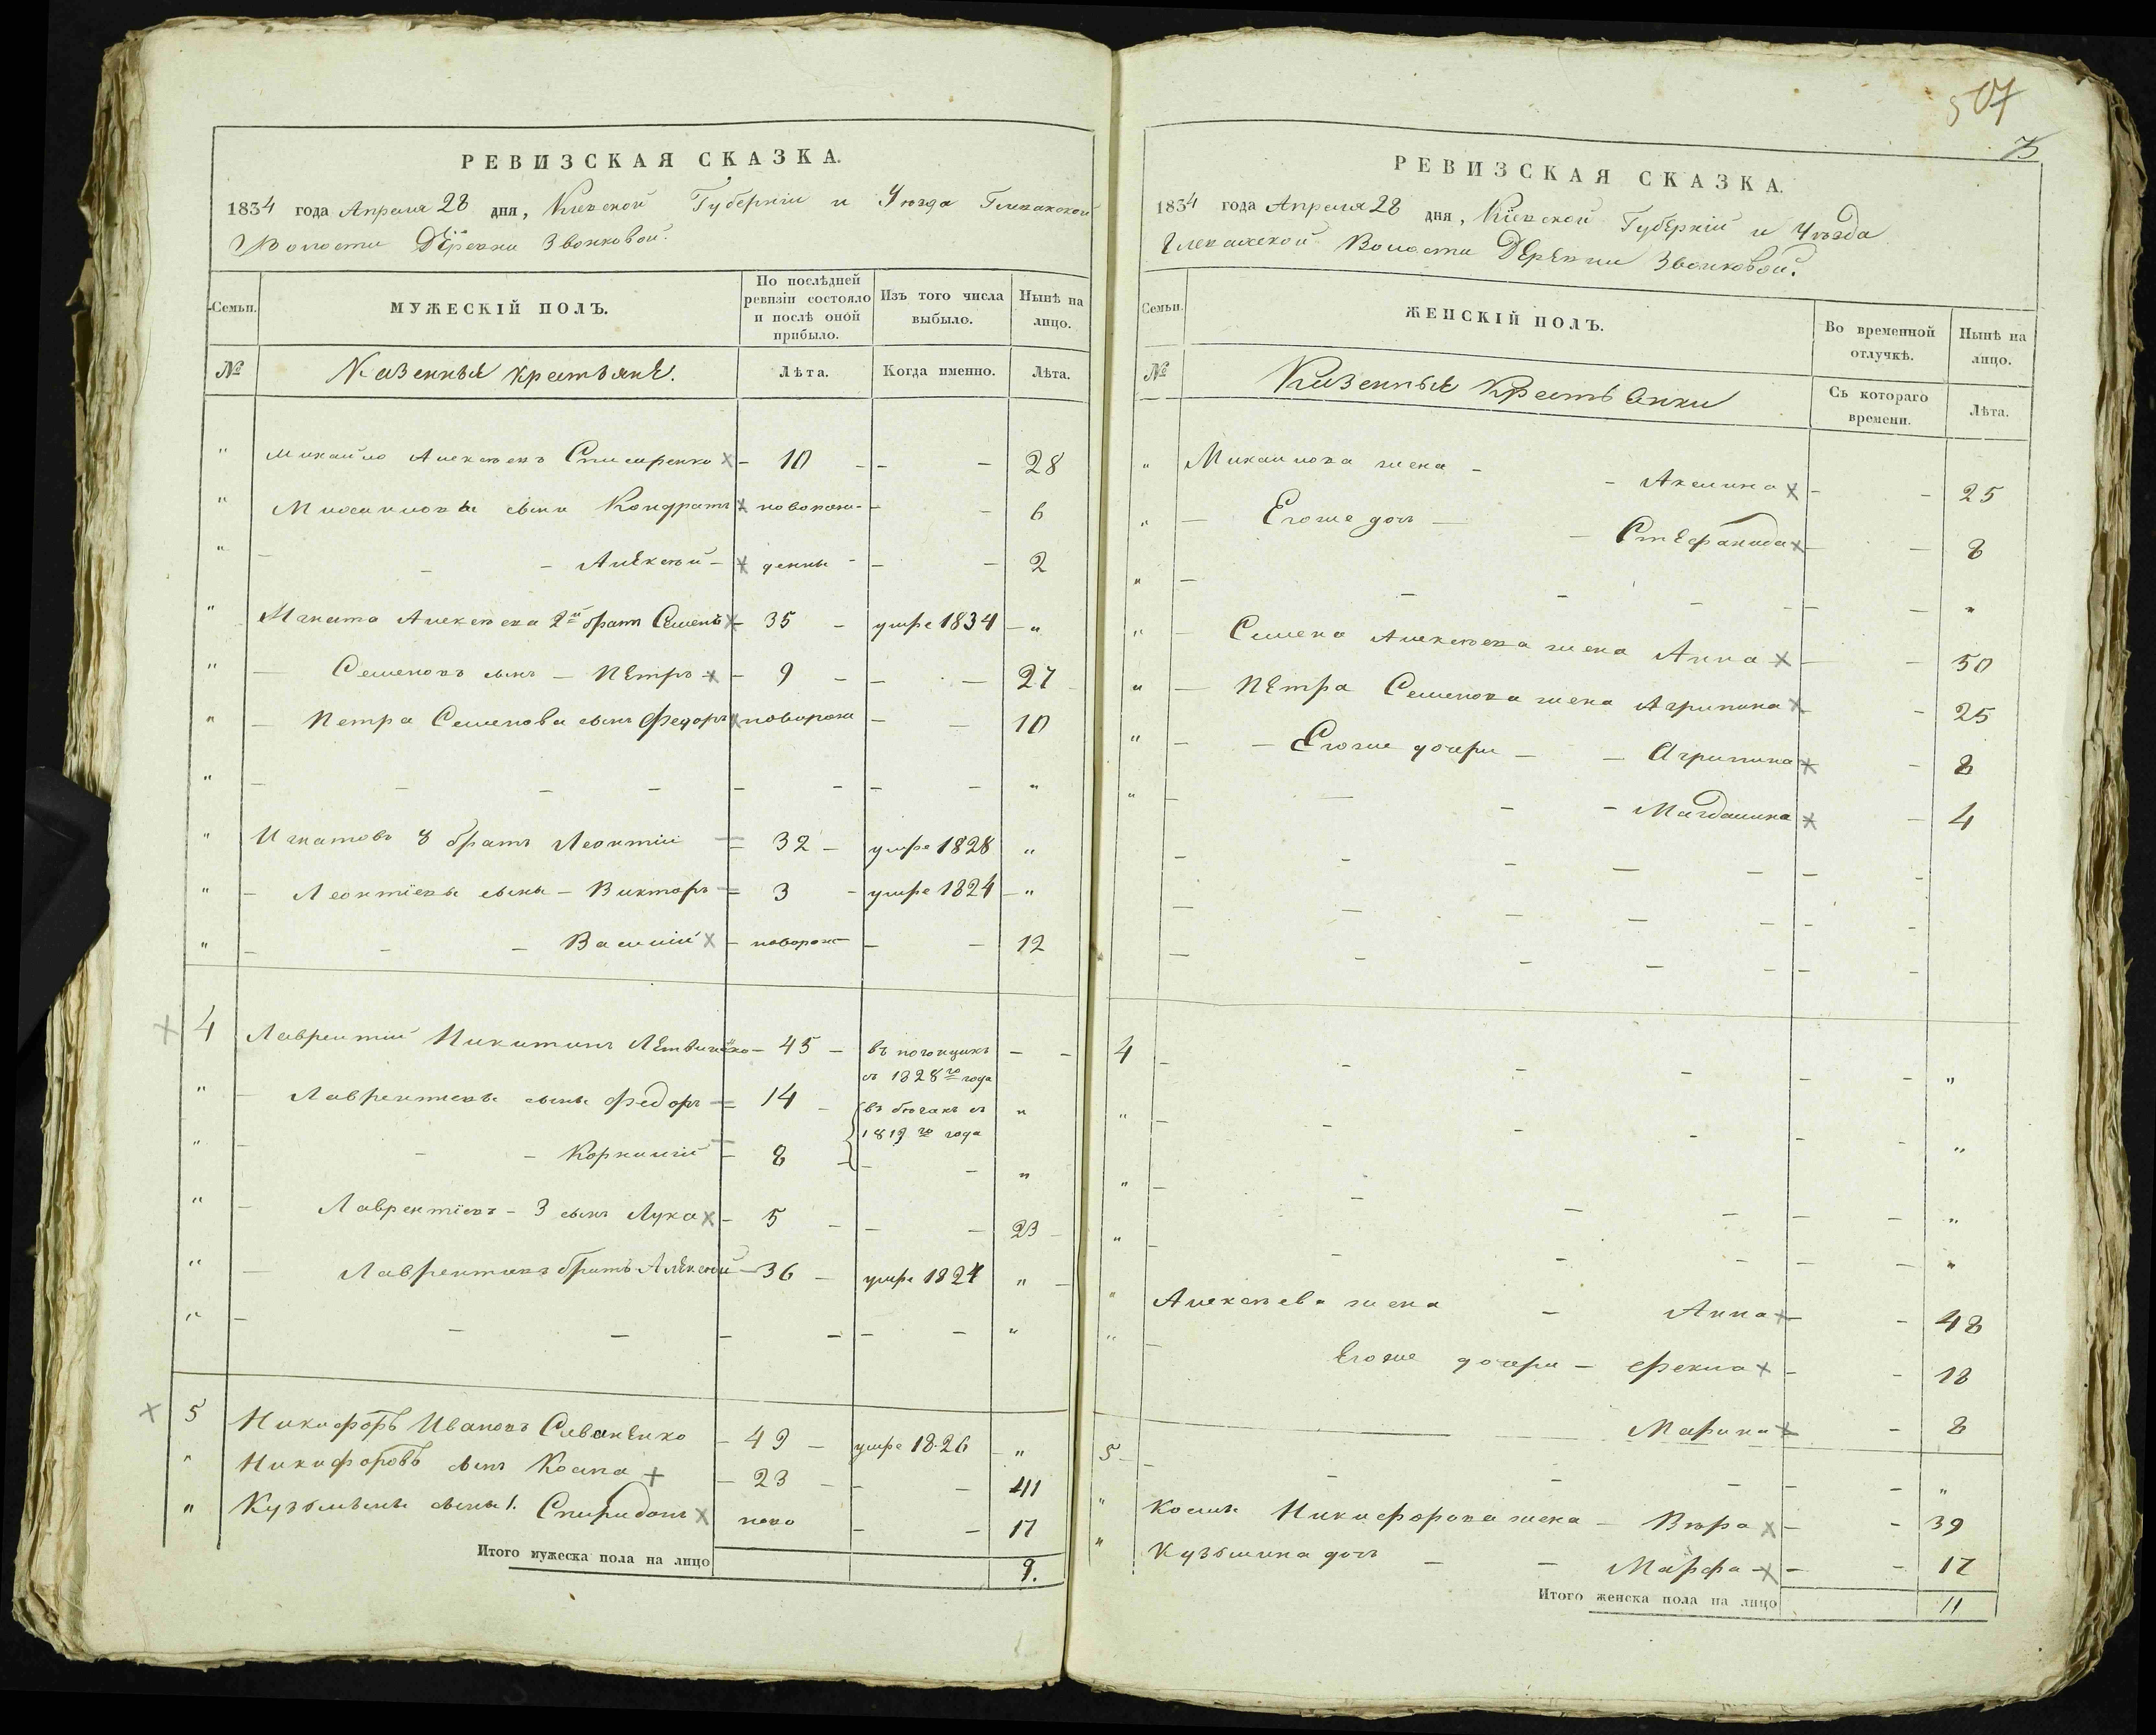 507
75
РЕВИЗСКАЯ СКАЗКА.
1834 года Апреля 28 дня, Киевской Губернии и Уезда Глевахской
Волости Деревни Звонковой.
Семьи. МУЖЕСКІЙ ПОЛЪ. По послѣдней ревизіи состояло и послѣ оной прибыло. Изъ того числа выбыло. Нынѣ на лицо.
№ Казенные крестьяне. Лѣта. Когда именно. Лѣта.
" Михайло Алексѣевъ x - 10 - - - 28
" Михайловы сыни Кондратъ x новорож- - - 6
" - - - Алексѣй - x денны - - - 2
" Игната Алексѣева 2й братъ Семенъ x 35 - умре 1834 - "
" - Семеновъ сынъ - Петръ x - 9 - - - 27
" - Петра Семенова сынъ Федоръ x новорож - - 10
" - - - - - - - - "
" Игнатовъ 8 братъ Леонтій = 32 - умре 1828 "
" - Леонтіевы сыны - Викторъ = 3 - умре 1824 - "
" - - - Василій x - новорож - - 12
x 4 Лаврентій Никитинъ - 45 - въ погонщикъ - -
съ 1828го года
" - Лаврентиевы сыны Федоръ = 14 - въ бѣгахъ съ "
1819го года
" - - - Корнилій - 8 - - - "
" - Лаврентіевъ - 3 сынъ Лука x - 5 - - - 23 -
" - Лаврентиевъ братъ Алексѣй - 36 - умре 1824 " -
" - - - - - - - "
x 5 Никифоръ Ивановъ - 49 - умре 1826 - "
" Никифоровъ сынъ Косма + - 23 - - - 41
" Кузьмины сыны 1. Спиридонъ x ново - - 17
Итого мужеска пола на лицо 9.
РЕВИЗСКАЯ СКАЗКА.
1834 года Апреля 28 дня, Кіевской Губерній и Уѣзда
Глевахской Волости Деревни Звонковой.
Семьи. ЖЕНСКІЙ ПОЛЪ. Во временной отлучкѣ. Нынѣ на лицо.
№ Казенные Крестьянки Съ котораго времени. Лѣта.
" Михайлова жена - - Акилина x - - 25
" - Егоже дочь - - Стефанида x - - 8
" - - - - - - - "
" - Семена Алексѣева жена Анна x - - 50
" - Петра Семенова жена Агрипина x - 25
" - - Егоже дочери - - Агрипина x - 8
" - - - - Магдалина x - 4
- - - - - - -
- - - - - - -
- - - - - - -
4 - - - - - - "
" - - - - - - "
" - - - - - - "
" - - - - - - "
" Алексѣева жена - Анна x - 48
" - Егоже дочери - Фекла x - - 18
Марина x - 8
5 - - - - - - "
" Космы Никифорова жена - Вѣра x - - 39
" Кузьмина дочь - - Марфа - x - - 17
Итого женска пола на лицо 11